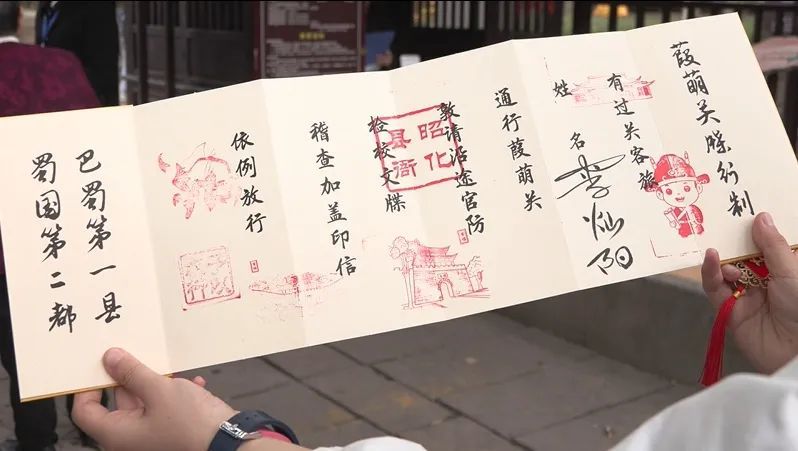 葭萌关牒行制
有过关客旅
姓名
李灿阳
通行葭萌关
敦请沿途官防
检校文牒
昭化
县衙
稽查加盖印信
依例放行
巴蜀第一县
蜀国第二都